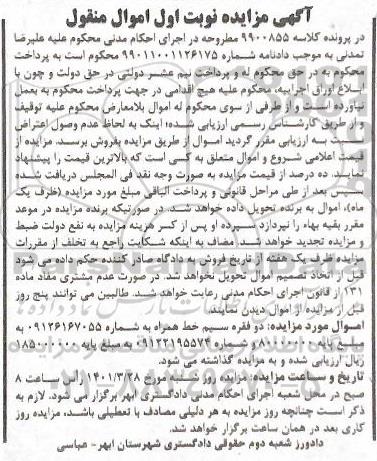 آگهی مزایده نوبت اول اموال منقول
در پرونده کلاسه ۹۹۰۰۸۵۵ مطروحه در اجرای احکام مدنی محکوم علیه علیرضا
تمدنی به موجب دادنامه شماره ۹۹۰۱۱۰۰۱۱۲۶۱۷۵ محکوم است به پرداخت
محکوم به در حق محکوم له و پرداخت نیم عشر دولتی در حق دولت و چون با
ابلاغ اوراق اجراییه، محکوم علیه هیچ اقدامی در جهت پرداخت محکوم به بعمل
نیاورده است و از طرفی از سوی محکوم له اموال بلامعارض محکوم علیه توقیف
و از طریق کارشناس رسمی ارزیابی شده؛ اینک به لحاظ عدم وصول اعتراض
نسبت به ارزیابی مقرر گردید اموال از طریق مزایده بفروش برسد. مزایده از
قیمت اعلامی شروع و اموال متعلق به کسی است که بالاترین قیمت را پیشنهاد
نمایند. ده درصد از قیمت مزایده به صورت وجه نقد فی المجلس دریافت شده
سپس بعد از طی مراحل قانونی و پرداخت الباقی مبلغ مورد مزایده (ظرف یک
ماه)، اموال به برنده تحویل داده خواهد شد. در صورتیکه برنده مزایده در موعد
مقرر بقیه بهاء را نپردازد سپرده او پس از کسر هزینه مزایده به نفع دولت ضبط
و مزایده تجدید خواهد شد. مضاف به اینکه شکایت راجع به تخلف از مقررات
مزایده ظرف یک هفته از تاریخ فروش به دادگاه صادر کننده حکم داده می شود
قبل از اتخاذ تصمیم اموال تحویل نخواهد شد. در صورت عدم مشتری مفاد ماده
۱۳۱ از قانون اجرای احکام مدنی رعایت خواهد شد. طالبین می توانند پنج روز
قبل از مزایده از اموال دیدن نمایند.
اموال مورد مزایده: دو فقره سیم خط همراه به شماره ۰۹۱۲۶۱۶۷۰۵۵ به
مبلغ پایه ۸۱۰۰۰۰۰۰ و شماره ۰۹۱۲۲۱۹۵۵۷۴ به مبلغ پایه ۱۸۵۰۰۰۰۰۰
ریال ارزیابی شده و به مزایده گذاشته می شود.
تاریخ و ساعت مزایده: مزایده روز شنبه مورخ ۱۴۰۱/۳/۲۸ راس ساعت ۸
صبح در محل شعبه اجرای احکام مدنی دادگستری ابهر برگزار می شود. لازم به
ذکر است چنانچه روز مزایده به هر دلیلی مصادف با تعطیلی باشد، مزایده روز
کاری بعد در همان ساعت برگزار خواهد شد.
دادورز شعبه دوم حقوقی دادگستری شهرستان ابهر- عباسی